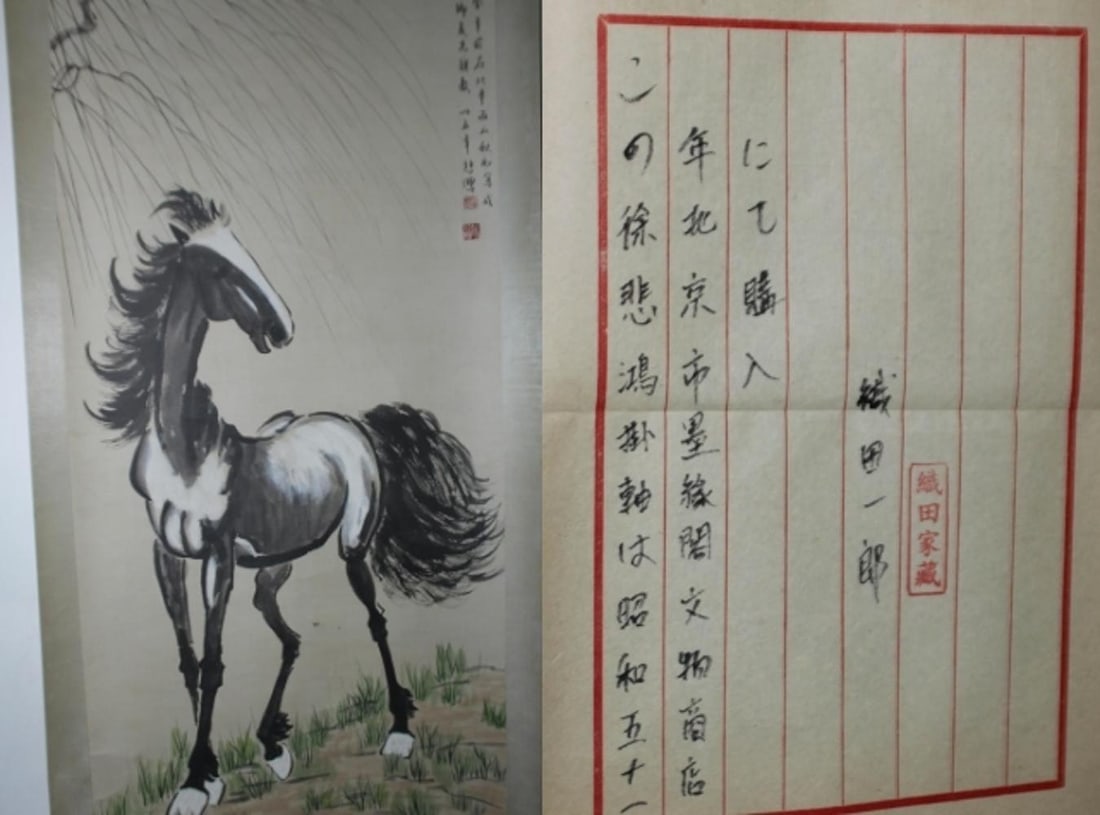 悲鴻
この徐悲鴻掛軸は昭和五十一
年北京市墨緣閣文物商店
にて購入
織田一郎
織田家藏